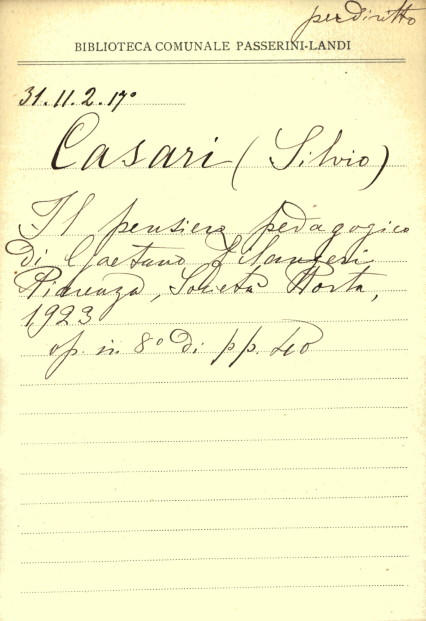 per diritto
BIBLIOTECA COMUNALE PASSERINI-LANDI
31.11.2.17°
Casari (Silvio)
Il pensiero pedagogico
di Gaetano Filangeri
Piacenza, Società Porta,
1923
op. in 8° di pp. 40